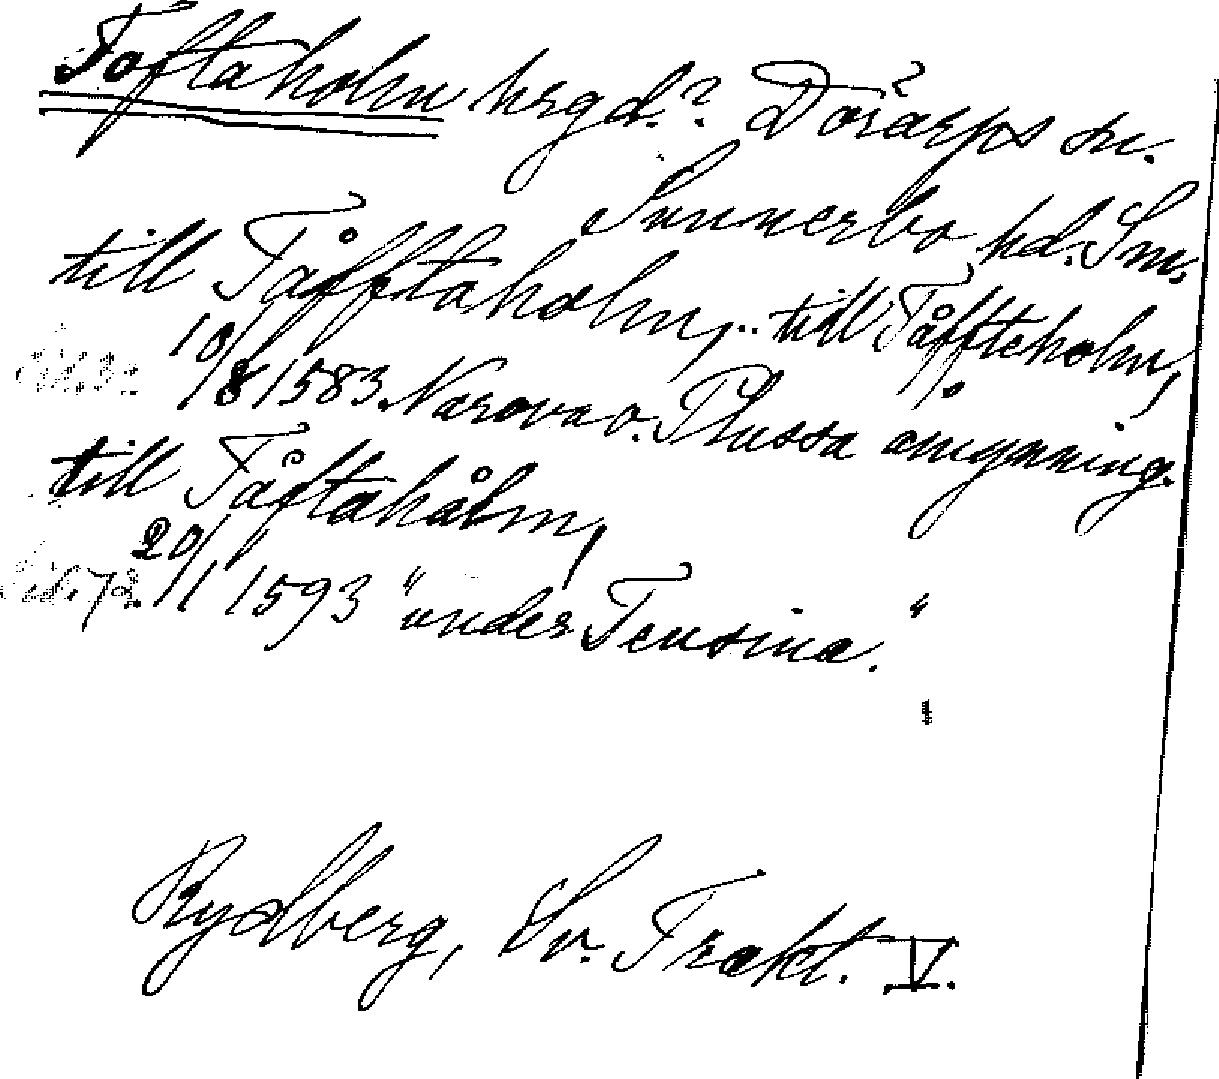 Toftaholm hrgd.? Dörarps sn.
Sunnerbo hd. Sm.
till Tåfftaholm, .. till Tåffteholm,
10/8 1583. Narova o. Plussa
till Tåftahålm,
20/1 1593 "under Teusina."
Rydberg, Sv. Trakt. V.